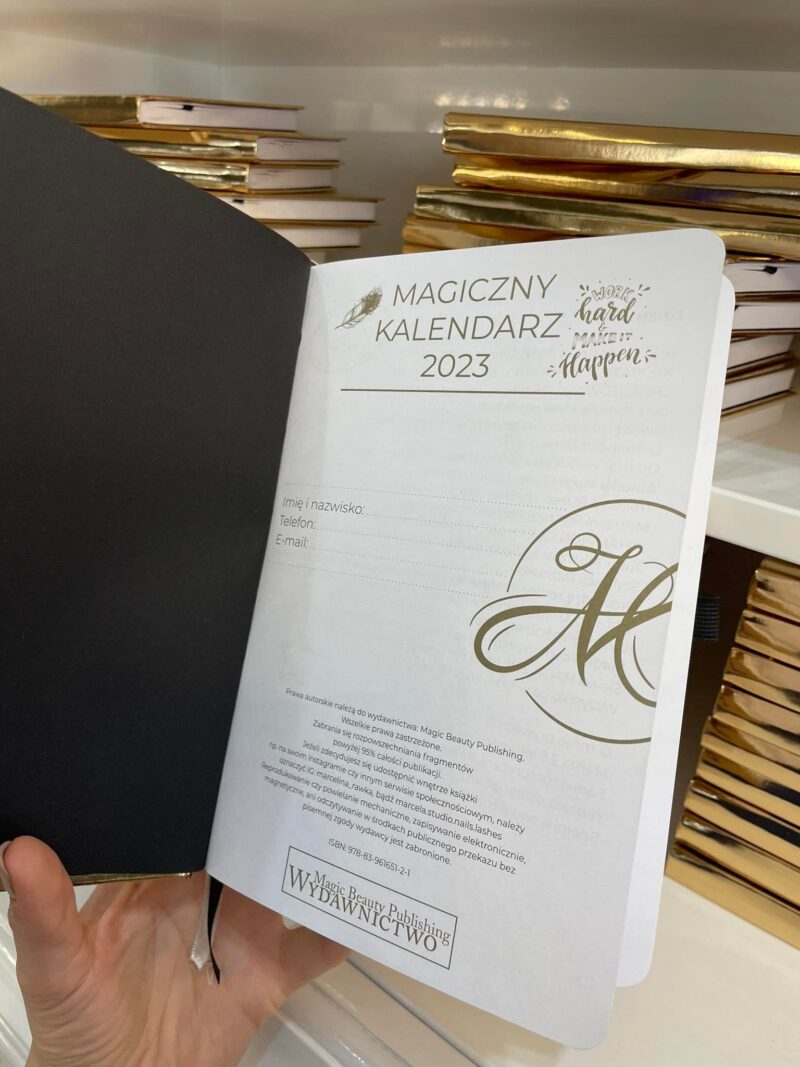 MAGICZNY
KALENDARZ
2023
WORK
hard
&
MAKE IT
Happen
Imię i nazwisko:
Telefon:
E-mail:
M
Prawa autorskie należą do wydawnictwa: Magic Beauty Publishing.
Wszelkie prawa zastrzeżone.
Zabrania się rozpowszechniania fragmentów
powyżej 95% całości publikacji.
Jeżeli zdecydujesz się udostępnić wnętrze książki
np. na swoim Instagramie czy innym serwisie społecznościowym, należy
oznaczyć IG: marcelina_rawka, bądź marcela.studio.nails.lashes
Reprodukowanie czy powielanie mechaniczne, zapisywanie elektronicznie,
magnetyczne, ani odczytywanie w środkach publicznego przekazu bez
pisemnej zgody wydawcy jest zabronione.
ISBN: 978-83-961651-2-1
Magic Beauty Publishing
WYDAWNICTWO